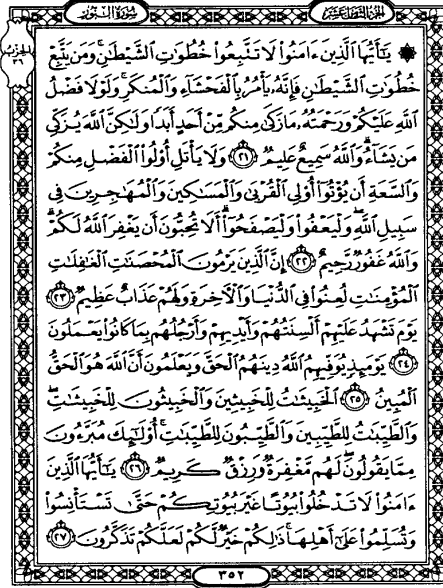 سُورَةُ النُّورِ الجُزْءُ الثَّامِنَ عَشَرَ
الحِزْبُ
٣٦
۞ يَٰٓأَيُّهَا ٱلَّذِينَ ءَامَنُوا۟ لَا تَتَّبِعُوا۟ خُطُوَٰتِ ٱلشَّيْطَٰنِ ۚ وَمَن يَتَّبِعْ
خُطُوَٰتِ ٱلشَّيْطَٰنِ فَإِنَّهُۥ يَأْمُرُ بِٱلْفَحْشَآءِ وَٱلْمُنكَرِ ۚ وَلَوْلَا فَضْلُ
ٱللَّهِ عَلَيْكُمْ وَرَحْمَتُهُۥ مَا زَكَىٰ مِنكُم مِّنْ أَحَدٍ أَبَدًا وَلَٰكِنَّ ٱللَّهَ يُزَكِّى
مَن يَشَآءُ ۗ وَٱللَّهُ سَمِيعٌ عَلِيمٌ ٢١ وَلَا يَأْتَلِ أُو۟لُوا۟ ٱلْفَضْلِ مِنكُمْ
وَٱلسَّعَةِ أَن يُؤْتُوٓا۟ أُو۟لِى ٱلْقُرْبَىٰ وَٱلْمَسَٰكِينَ وَٱلْمُهَٰجِرِينَ فِى
سَبِيلِ ٱللَّهِ ۖ وَلْيَعْفُوا۟ وَلْيَصْفَحُوٓا۟ ۗ أَلَا تُحِبُّونَ أَن يَغْفِرَ ٱللَّهُ لَكُمْ ۗ
وَٱللَّهُ غَفُورٌ رَّحِيمٌ ٢٢ إِنَّ ٱلَّذِينَ يَرْمُونَ ٱلْمُحْصَنَٰتِ ٱلْغَٰفِلَٰتِ
ٱلْمُؤْمِنَٰتِ لُعِنُوا۟ فِى ٱلدُّنْيَا وَٱلْءَاخِرَةِ وَلَهُمْ عَذَابٌ عَظِيمٌ ٢٣
يَوْمَ تَشْهَدُ عَلَيْهِمْ أَلْسِنَتُهُمْ وَأَيْدِيهِمْ وَأَرْجُلُهُم بِمَا كَانُوا۟ يَعْمَلُونَ
٢٤ يَوْمَئِذٍ يُوَفِّيهِمُ ٱللَّهُ دِينَهُمُ ٱلْحَقَّ وَيَعْلَمُونَ أَنَّ ٱللَّهَ هُوَ ٱلْحَقُّ
ٱلْمُبِينُ ٢٥ ٱلْخَبِيثَٰتُ لِلْخَبِيثِينَ وَٱلْخَبِيثُونَ لِلْخَبِيثَٰتِ ۖ
وَٱلطَّيِّبَٰتُ لِلطَّيِّبِينَ وَٱلطَّيِّبُونَ لِلطَّيِّبَٰتِ ۚ أُو۟لَٰٓئِكَ مُبَرَّءُونَ
مِمَّا يَقُولُونَ ۖ لَهُم مَّغْفِرَةٌ وَرِزْقٌ كَرِيمٌ ٢٦ يَٰٓأَيُّهَا ٱلَّذِينَ
ءَامَنُوا۟ لَا تَدْخُلُوا۟ بُيُوتًا غَيْرَ بُيُوتِكُمْ حَتَّىٰ تَسْتَأْنِسُوا۟
وَتُسَلِّمُوا۟ عَلَىٰٓ أَهْلِهَا ۚ ذَٰلِكُمْ خَيْرٌ لَّكُمْ لَعَلَّكُمْ تَذَكَّرُونَ ٢٧
٣٥٢